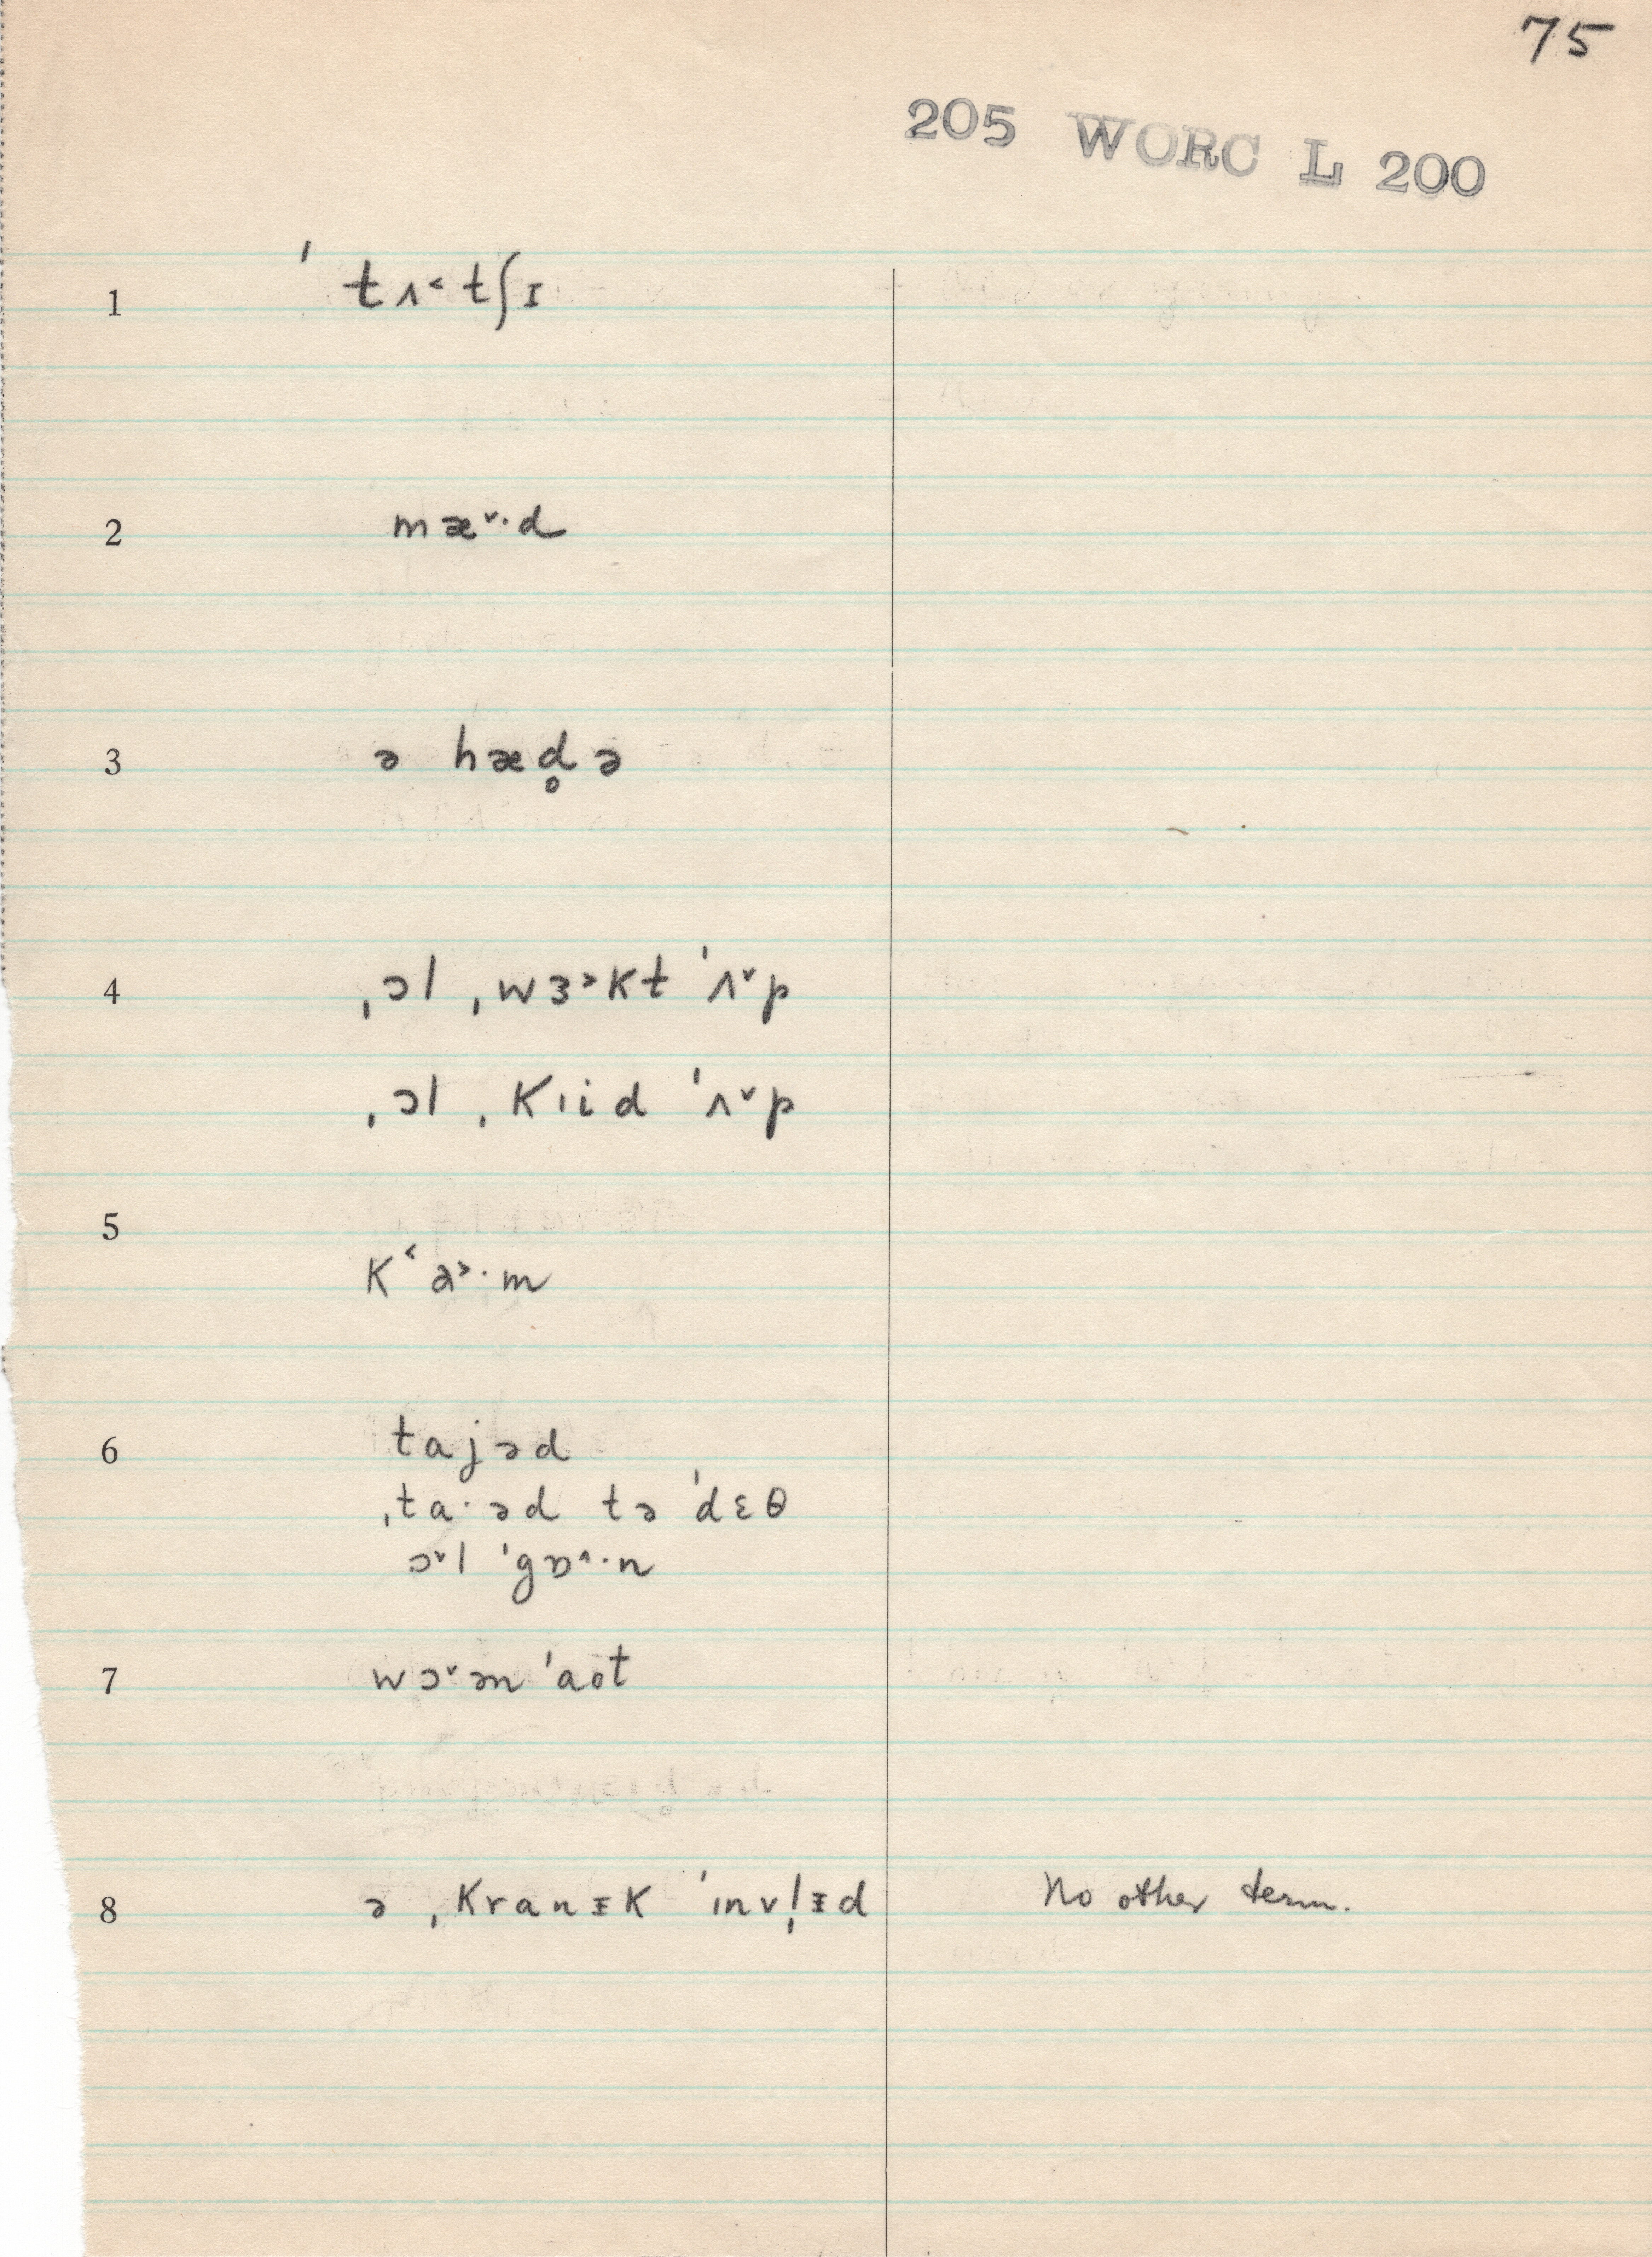 75
205 WORC L 200
1 ˈtʌ˂tʃɪ
2 mæ˅·d
3 ə hæd̥ə
4 ˌɔl ˌwɜ˃kt ˈʌ˅p
ˌɔl ˌkɪid ˈʌ˅p
5
k˂a˃·m
6 tajəd
ˌta·əd tə ˈdɛθ
ɔ˅l ˈgɒ˄·n
7 wɔ˅ən ˈaʊt
8 ə ˌkranɪ̵k ˈɪnvl̩ɪ̵d No other term.